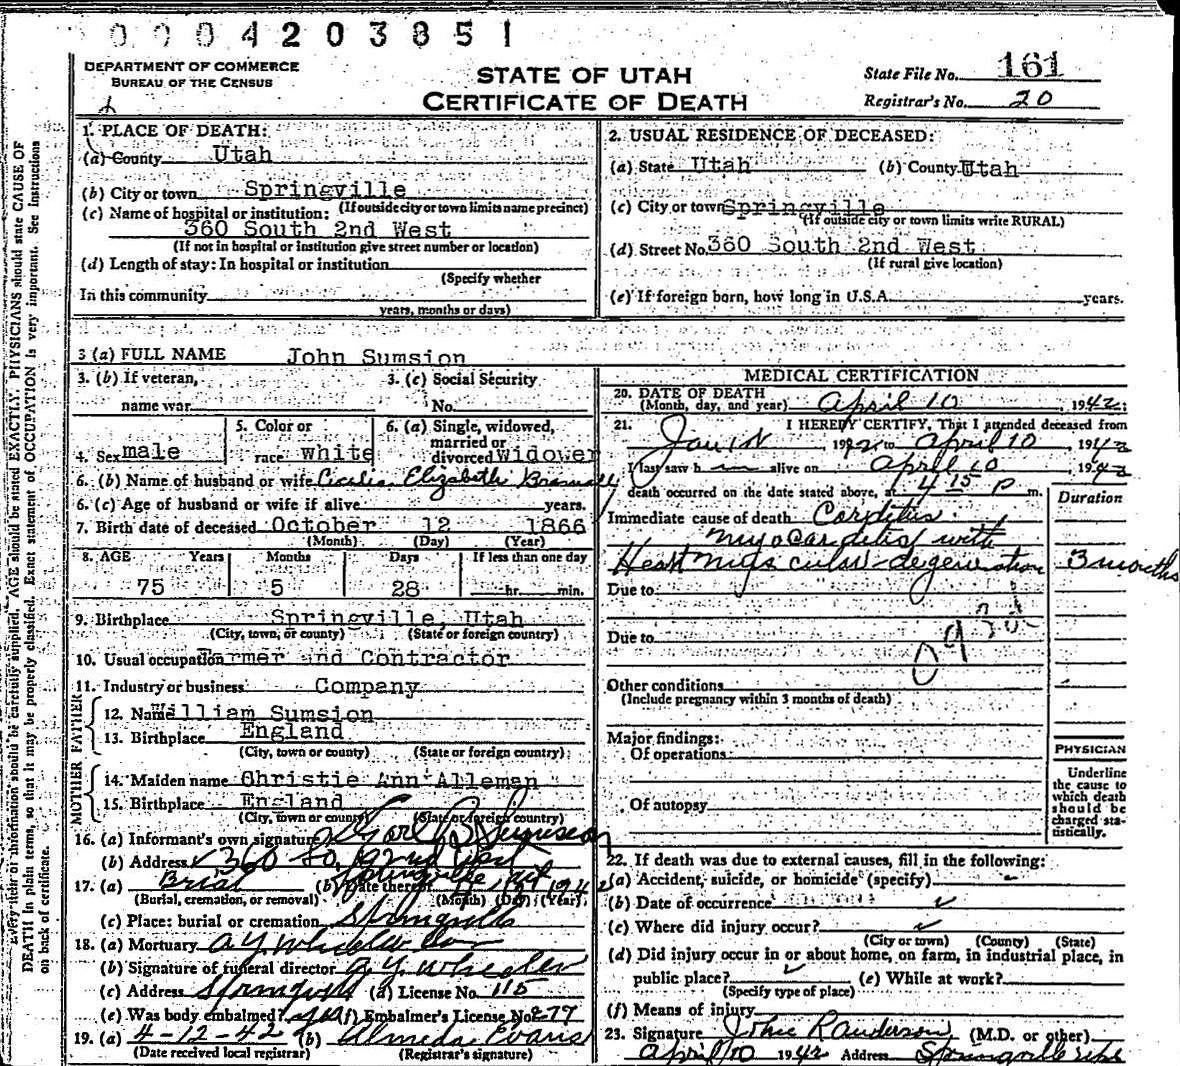 0004203851
DEPARTMENT OF COMMERCE
BUREAU OF THE CENSUS
STATE OF UTAH
CERTIFICATE OF DEATH
State File No. 161
Registrar's No. 20
Every item of information should be carefully supplied. AGE should be stated EXACTLY. PHYSICIANS should state CAUSE OF
DEATH in plain terms, so that it may be properly classified. Exact statement of OCCUPATION is very important. See Instructions
on back of certificate.
1. PLACE OF DEATH:
(a) County Utah
(b) City or town Springville
(If outside city or town limits name precinct)
(c) Name of hospital or institution:
360 South 2nd West
(If not in hospital or institution give street number or location)
(d) Length of stay: In hospital or institution
(Specify whether
In this community
years, months or days)
2. USUAL RESIDENCE OF DECEASED:
(a) State Utah (b) County Utah
(c) City or town Springville
(If outside city or town limits write RURAL)
(d) Street No. 360 South 2nd West
(If rural give location)
(e) If foreign born, how long in U.S.A. years.
3 (a) FULL NAME John Sumsion
3. (b) If veteran,
name war
3. (c) Social Security
No.
4. Sex male
5. Color or
race White
6. (a) Single, widowed,
married or
divorced Widower
6. (b) Name of husband or wife Elizabeth
6. (c) Age of husband or wife if alive years.
7. Birth date of deceased October 12 1866
(Month) (Day) (Year)
8. AGE Years Months Days If less than one day
75 5 28 hr. min.
9. Birthplace Springville, Utah
(City, town, or county) (State or foreign country)
10. Usual occupation Farmer and Contractor
11. Industry or business Company
FATHER
12. Name William Sumsion
13. Birthplace England
(City, town or county) (State or foreign country)
MOTHER
14. Maiden name Christie Ann Alleman
15. Birthplace England
(City, town or county) (State or foreign country)
16. (a) Informant's own signature
(b) Address 360 So. 2nd West
Springville
17. (a) Burial (b) Date thereof 1942
(Burial, cremation, or removal) (Month) (Day) (Year)
(c) Place: burial or cremation Springville
18. (a) Mortuary A Y Wheeler
(b) Signature of funeral director A. Y. Wheeler
(c) Address Springville (d) License No. 115
(e) Was body embalmed? yes (f) Embalmer's License No. 277
19. (a) 4-12-42 (b) Almeda Evans
(Date received local registrar) (Registrar's signature)
MEDICAL CERTIFICATION
20. DATE OF DEATH
(Month, day, and year) April 10, 1942
21. I HEREBY CERTIFY, That I attended deceased from
1942 to April 10 1942
I last saw h im alive on April 10 1942
death occurred on the date stated above, at 4 15 P m.
Duration
Immediate cause of death Carditis
myocarditis with
Heart muscular degeneration 3 months
Due to
Due to
Other conditions
(Include pregnancy within 3 months of death)
Major findings:
Of operations
Of autopsy
PHYSICIAN
Underline
the cause to
which death
should be
charged sta-
tistically.
22. If death was due to external causes, fill in the following:
(a) Accident, suicide, or homicide (specify)
(b) Date of occurrence
(c) Where did injury occur?
(City or town) (County) (State)
(d) Did injury occur in or about home, on farm, in industrial place, in
public place? (e) While at work?
(Specify type of place)
(f) Means of injury
23. Signature Anderson (M.D. or other)
April 10 1942 Address Springville